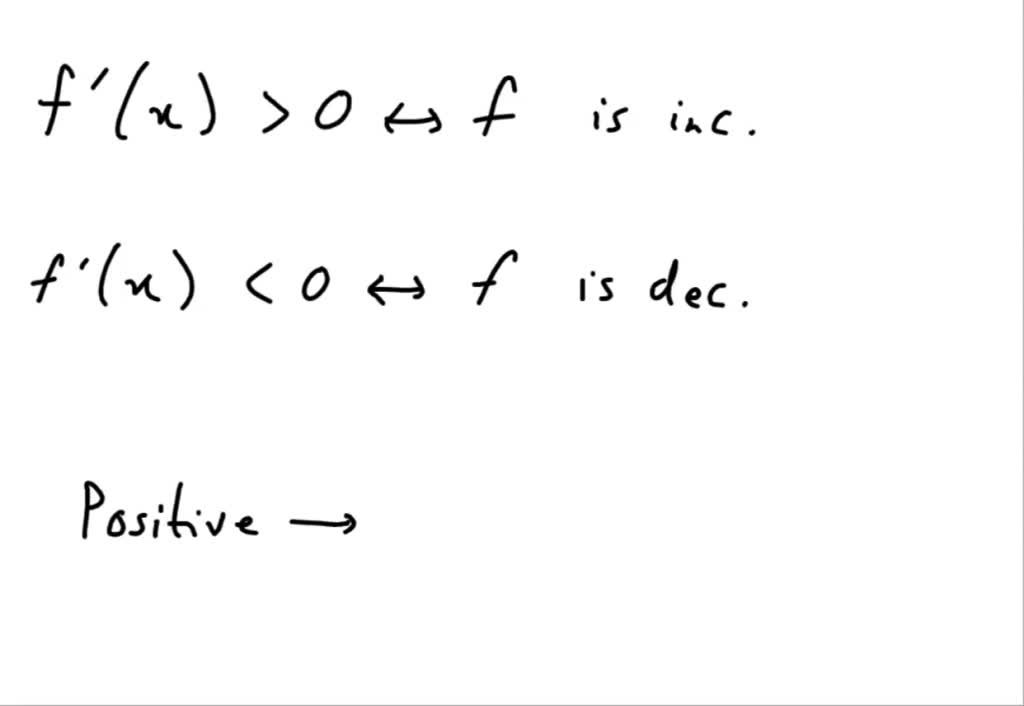 f'(x) > 0 ↔ f is inc.
f'(x) < 0 ↔ f is dec.
Positive →